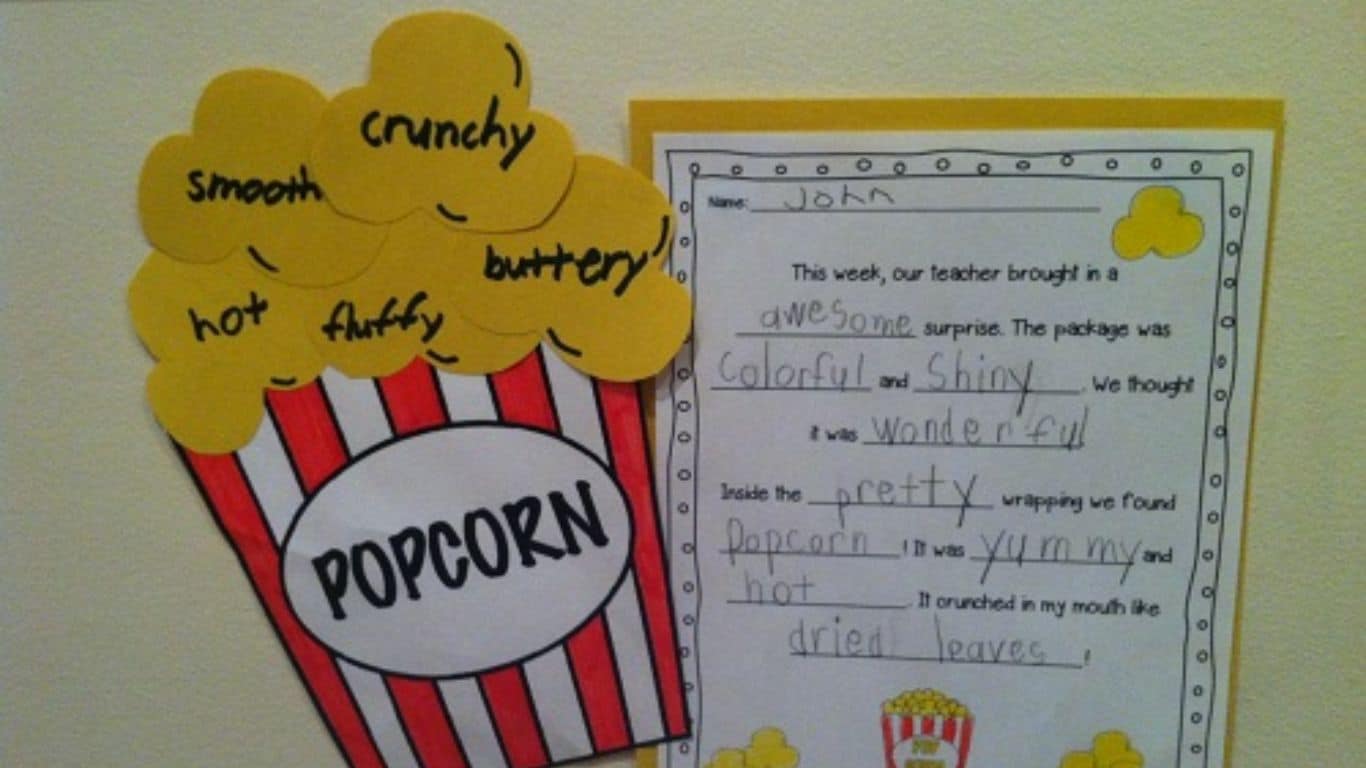 crunchy
smooth
buttery
hot
fluffy
POPCORN
Name: John
This week, our teacher brought in a
awesome surprise. The package was
colorful and Shiny. We thought
it was wonderful
Inside the pretty wrapping we found
Popcorn! It was yummy and
hot. It crunched in my mouth like
dried leaves!
POP